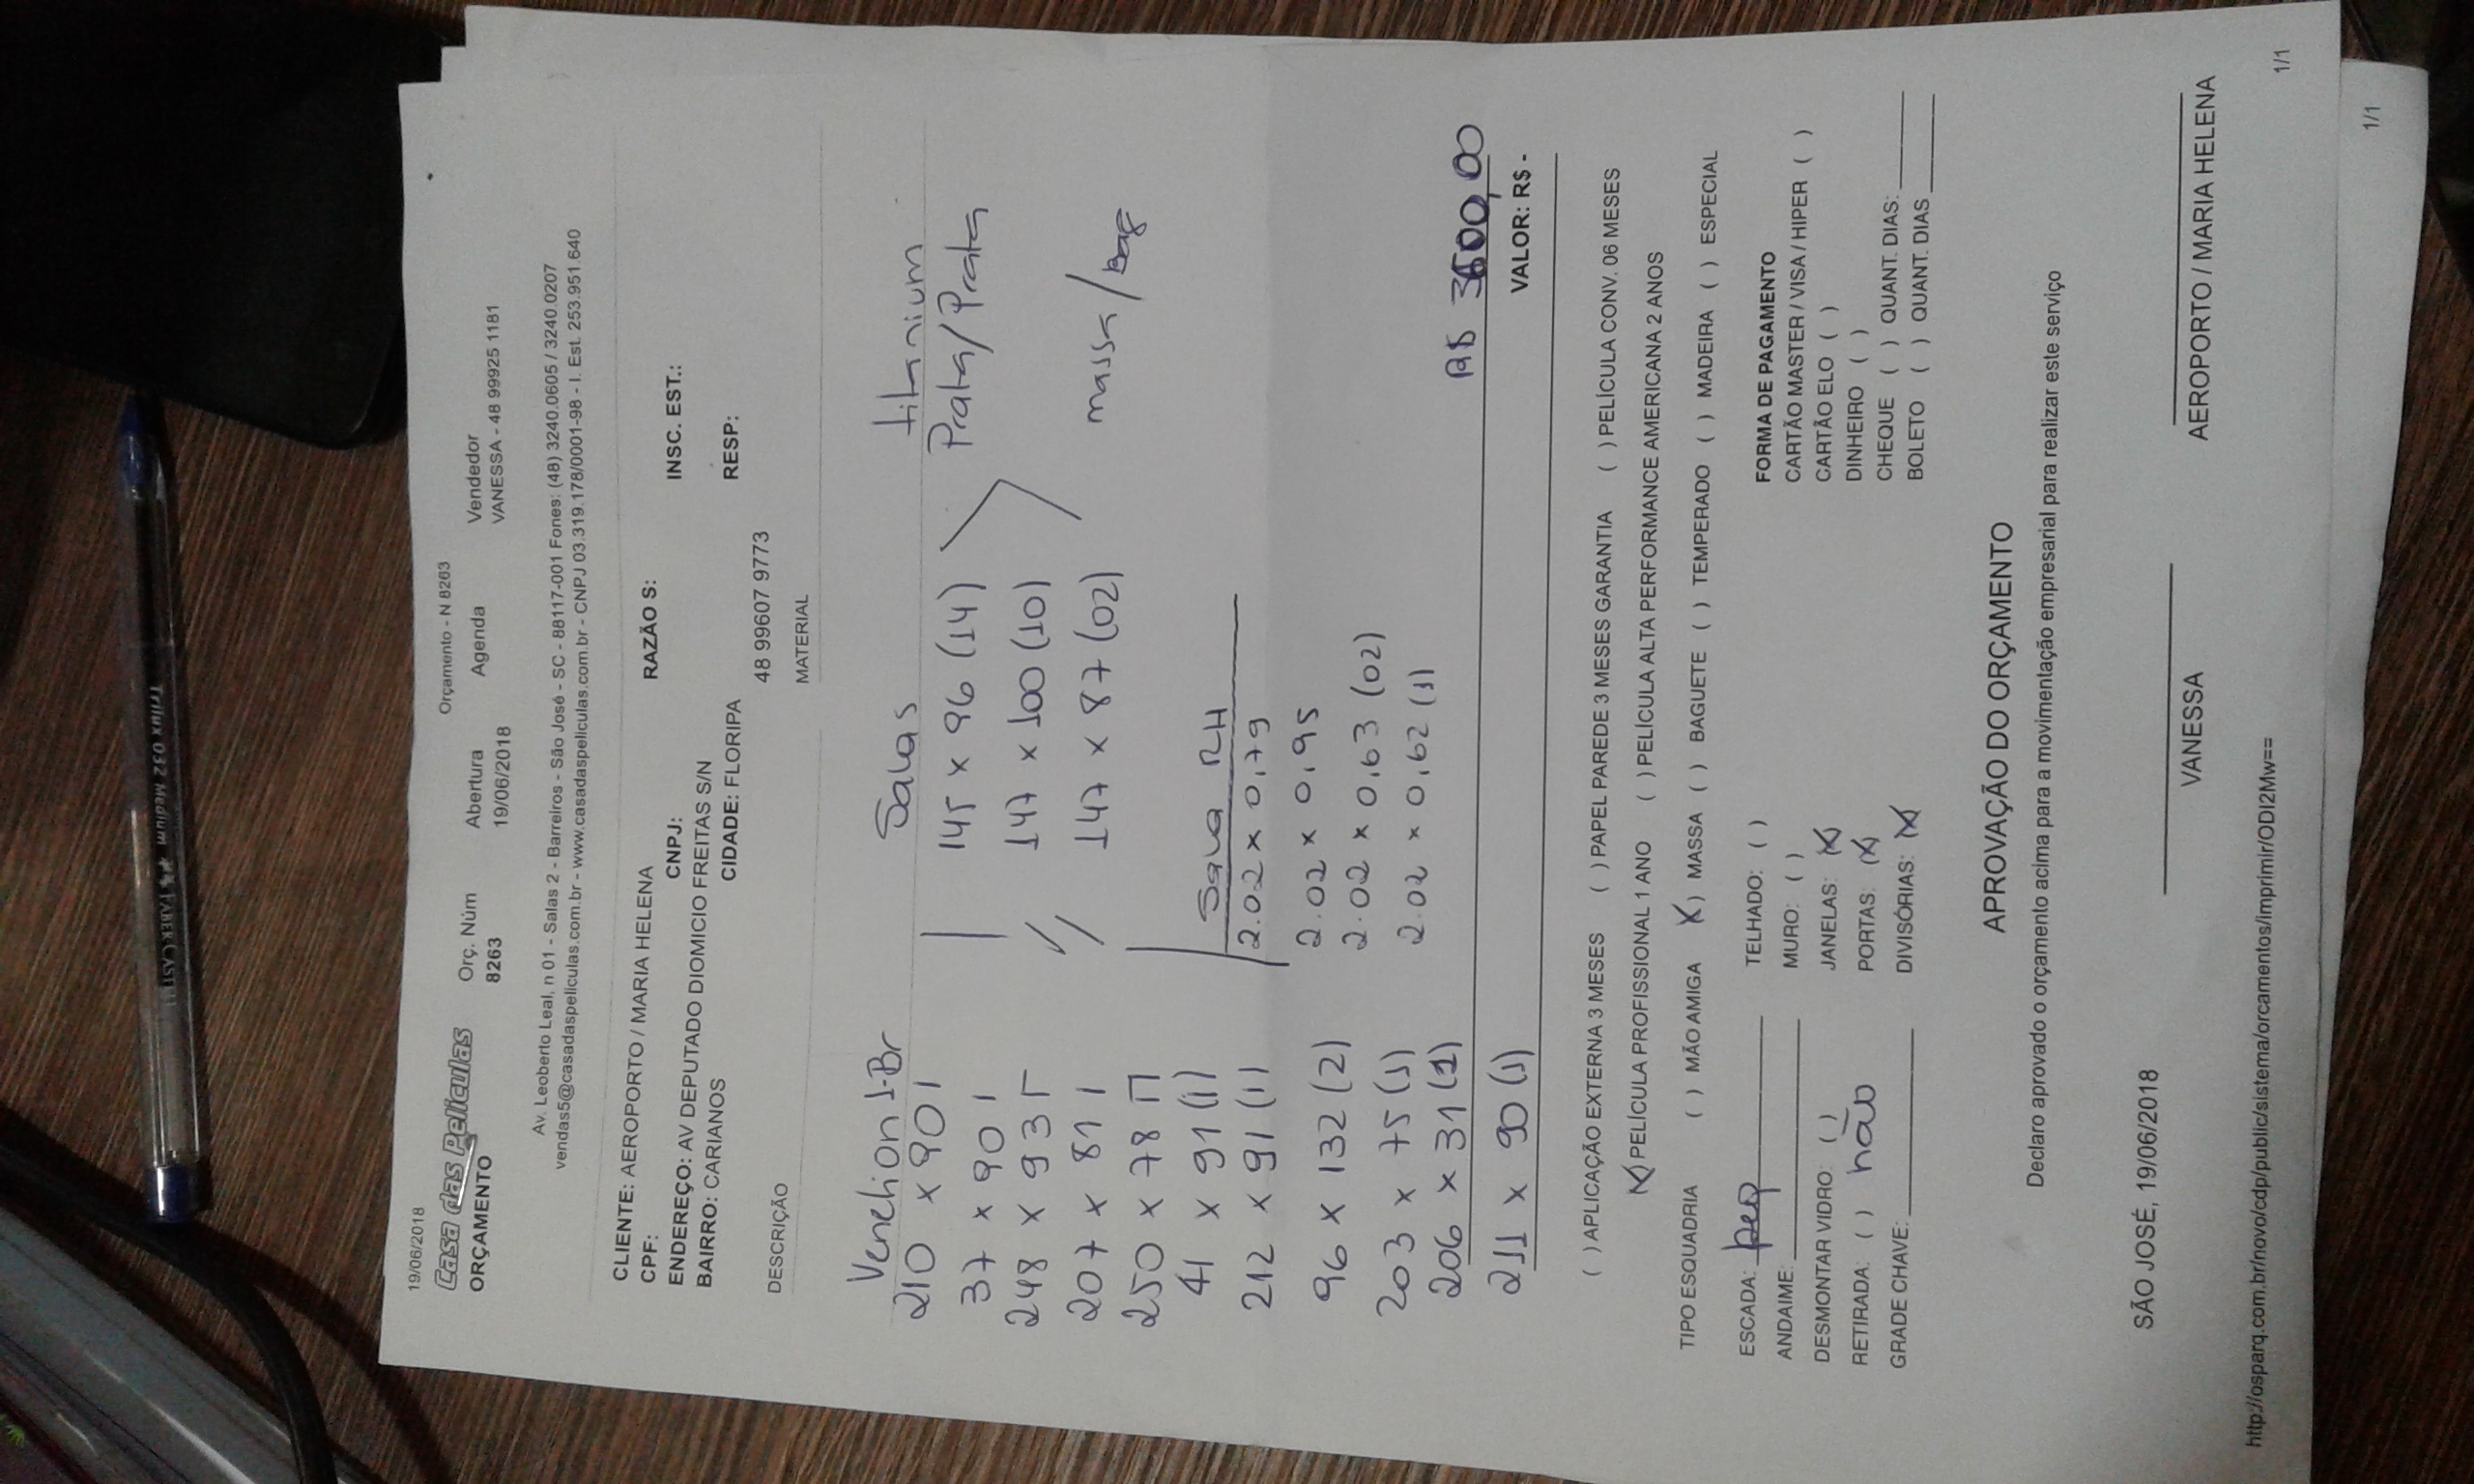 19/06/2018
Orçamento - N 8263
Casa das Películas
ORÇAMENTO
Orç. Núm
Abertura
Agenda
Vendedor
8263
19/06/2018
VANESSA - 48 99925 1181
Av. Leoberto Leal, n 01 - Salas 2 - Barreiros - São José - SC - 88117-001 Fones: (48) 3240.0605 / 3240.0207
vendas5@casadaspeliculas.com.br - www.casadaspeliculas.com.br - CNPJ 03.319.178/0001-98 - I. Est. 253.951.640
CLIENTE: AEROPORTO / MARIA HELENA
RAZÃO S:
CPF:
CNPJ:
INSC. EST.:
ENDEREÇO: AV DEPUTADO DIOMICIO FREITAS S/N
BAIRRO: CARIANOS
CIDADE: FLORIPA
RESP:
48 99607 9773
DESCRIÇÃO
MATERIAL
Salas
titanium
210 x 90 I
145 x 96 (14)
Prata/Prata
37 x 90 I
147 x 100 (10)
248 x 93
147 x 87 (02)
massa/
207 x 81 I
250 x 78
Sala RH
41 x 91 (1)
2.02 x 0,79
212 x 91 (1)
2.02 x 0,95
96 x 132 (2)
2.02 x 0,63 (02)
203 x 75 (1)
2.02 x 0,62 (1)
206 x 31 (1)
R$ 3600,00
211 x 90 (1)
VALOR: R$ -
( ) APLICAÇÃO EXTERNA 3 MESES ( ) PAPEL PAREDE 3 MESES GARANTIA ( ) PELÍCULA CONV. 06 MESES
(X) PELÍCULA PROFISSIONAL 1 ANO ( ) PELÍCULA ALTA PERFORMANCE AMERICANA 2 ANOS
TIPO ESQUADRIA ( ) MÃO AMIGA X) MASSA ( ) BAGUETE ( ) TEMPERADO ( ) MADEIRA ( ) ESPECIAL
ESCADA: peq
TELHADO: ( )
FORMA DE PAGAMENTO
ANDAIME:
MURO: ( )
CARTÃO MASTER / VISA / HIPER ( )
DESMONTAR VIDRO: ( )
JANELAS: (X)
CARTÃO ELO ( )
RETIRADA: ( ) não
PORTAS: (X)
DINHEIRO ( )
GRADE CHAVE:
DIVISÓRIAS: (X)
CHEQUE ( ) QUANT. DIAS:
BOLETO ( ) QUANT. DIAS
APROVAÇÃO DO ORÇAMENTO
Declaro aprovado o orçamento acima para a movimentação empresarial para realizar este serviço
SÃO JOSÉ, 19/06/2018
VANESSA
AEROPORTO / MARIA HELENA
http://osparq.com.br/novo/cdp/public/sistema/orcamentos/imprimir/ODI2Mw==
1/1
1/1
Trilux 032 Medium
FABER-CASTELL